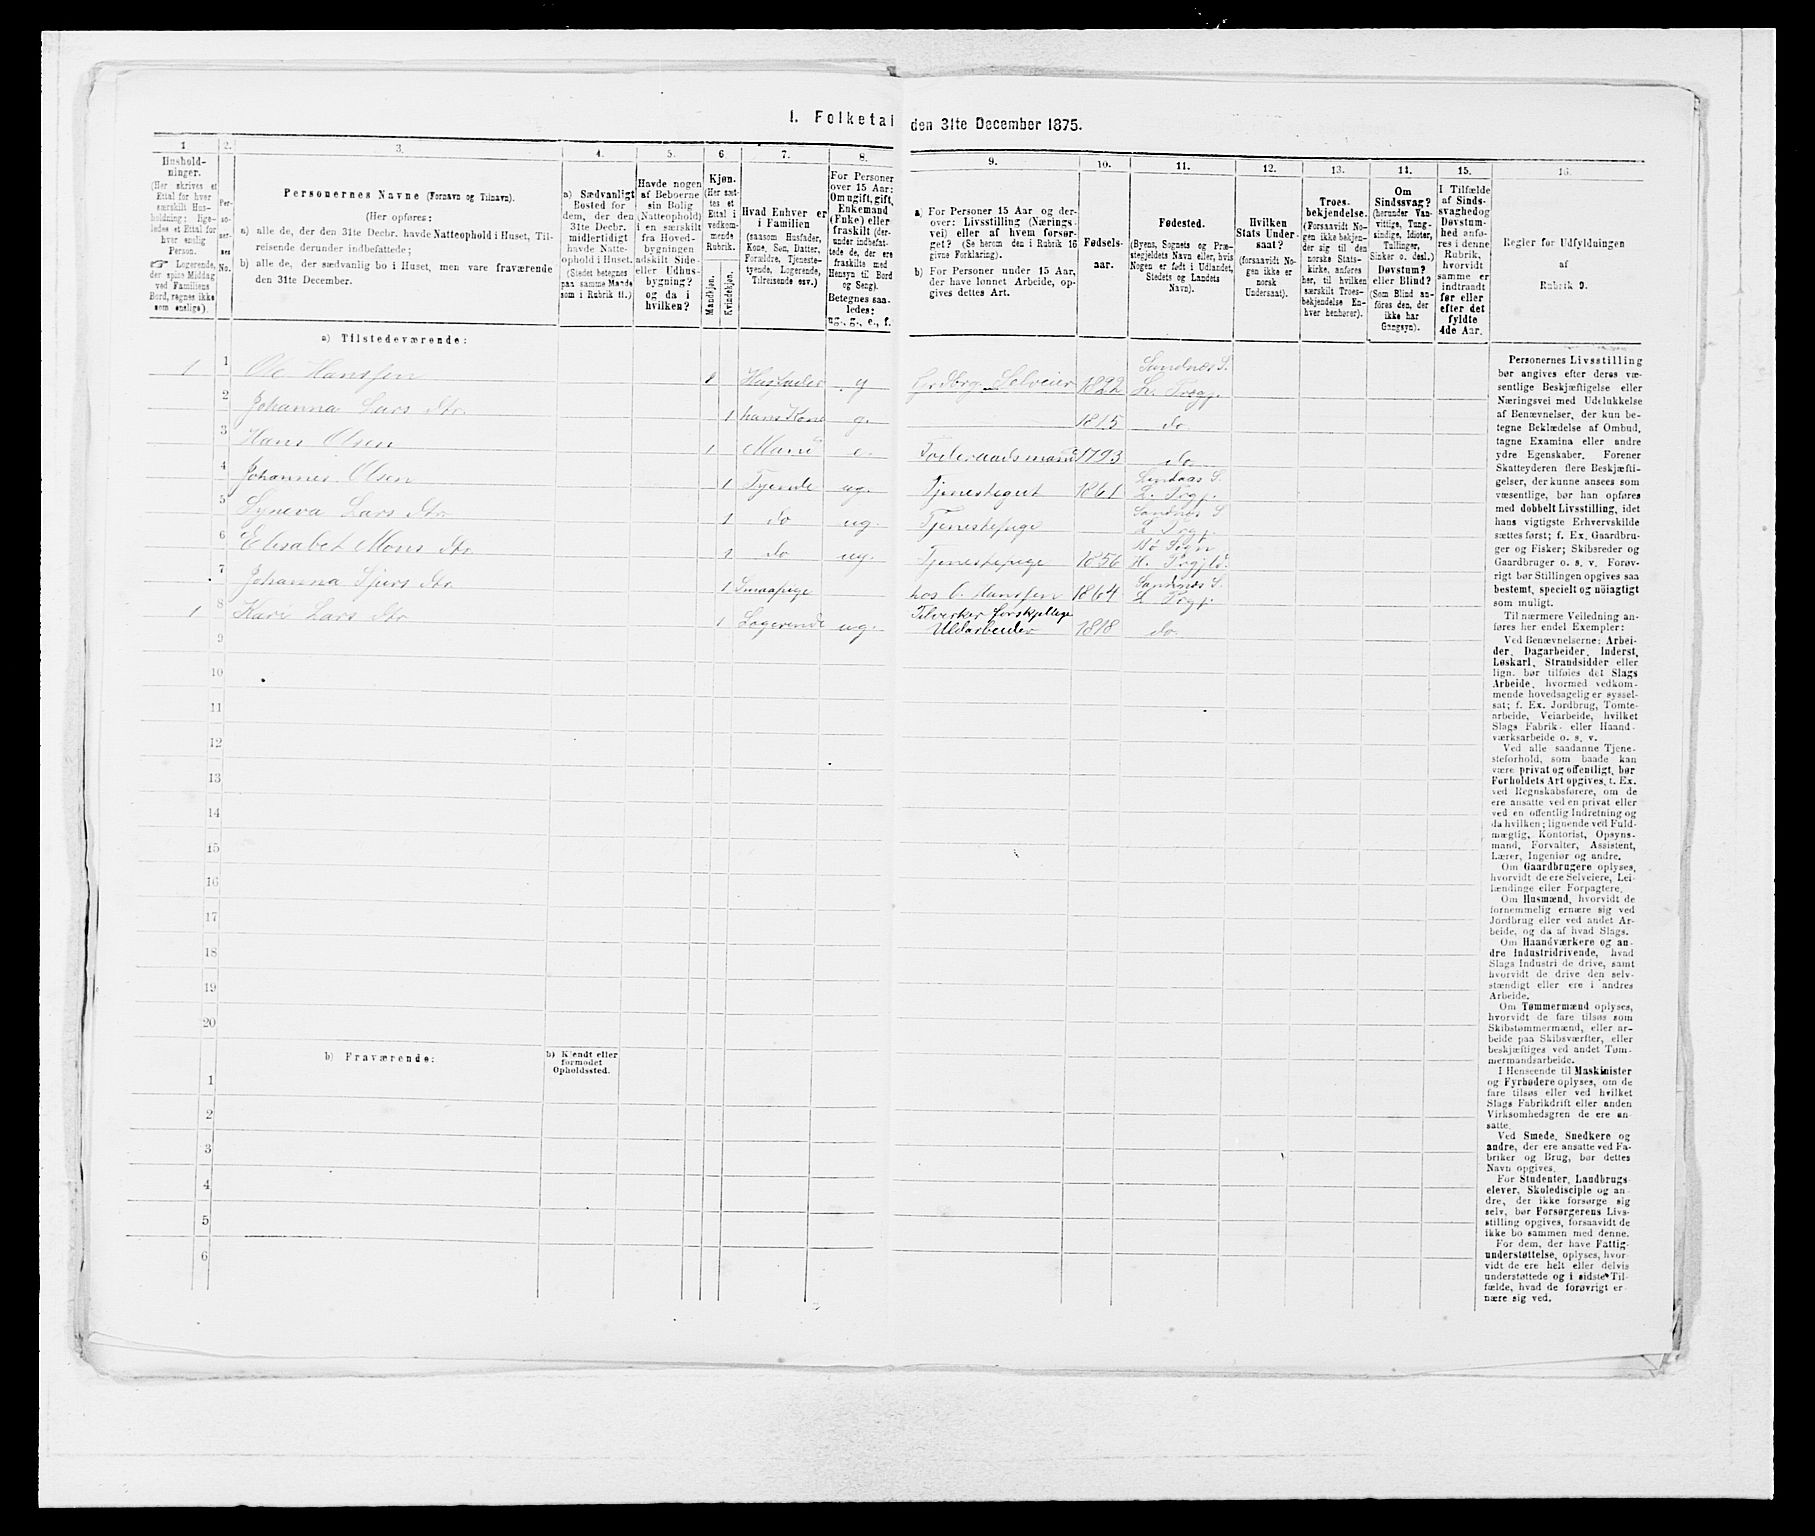 1. Folketal den 31te December 1875.
1. 2. 3. 4. 5. 6 7. 8. 9. 10. 11. 12. 13. 14. 15. 16.
Hushold-
ninger.
(Her skrives et
Ettal for hver
særskilt Hus-
holdning; lige-
ledes et Ettal for
hver enslig
Person.
☞ Logerende,
der spise Middag
ved Familiens
Bord, regnes ikke
som enslige).
Per-
so-
ner-
nes
No.
Personernes Navne (Fornavn og Tilnavn).
(Her opføres:
a) alle de, der den 31te Decbr. havde Natteophold i Huset, Til-
reisende derunder indbefattede;
b) alle de, der sædvanlig bo i Huset, men vare fraværende
den 31te December.
a) Sædvanligt
Bosted for
dem, der den
31te Decbr.
midlertidigt
havde Natte-
ophold i Huset.
(Stedet betegnes
paa samme Maade
som i Rubrik 11.)
Havde nogen
af Beboerne
sin Bolig
(Natteophold)
i en særskilt
fra Hoved-
bygningen
adskilt Side-
eller Udhus-
bygning?
og da i
hvilken?
Kjøn.
(Her sæt-
tes et
Ettal i
vedkom-
mende
Rubrik.
Mandkjøn.
Kvindekjøn.
Hvad Enhver er
i Familien
(saasom Husfader,
Kone, Søn, Datter,
Forældre, Tjeneste-
tyende, Logerende,
Tilreisende osv.)
For Personer
over 15 Aar:
Om ugift, gift,
Enkemand
(Enke) eller
fraskilt (der-
under indbefat-
tede de, der ere
fraskilte med
Hensyn til Bord
og Seng).
Betegnes saa-
ledes:
ug., g., e., f.
a) For Personer 15 Aar og der-
over: Livsstilling (Nærings-
vei) eller af hvem forsør-
get? (Se herom den i Rubrik 16
givne Forklaring).
b) For Personer under 15 Aar,
der have lønnet Arbeide, op-
gives dettes Art.
Fødsels-
aar.
Fødested.
(Byens, Sognets og Præ-
stegjeldets Navn eller, hvis
Nogen er født i Udlandet,
Stedets og Landets
Navn).
Hvilken
Stats Under-
saat?
(forsaavidt No-
gen ikke er
norsk
Undersaat).
Troes-
bekjendelse.
(Forsaavidt No-
gen ikke bekjen-
der sig til den
norske Stats-
kirke, anføres
her, til hvilken
særskilt Troes-
bekjendelse En-
hver henhører).
Om
Sindssvag?
(herunder Van-
vittige, Tung-
sindige, Idioter,
Tullinger,
Sinker o. desl.)
Døvstum?
eller Blind?
(Som Blind an-
føres den, der
ikke har
Gangsyn).
I Tilfælde
af Sinds-
svaghed og
Døvstum-
hed anfø-
res i denne
Rubrik,
hvorvidt
samme er
indtraadt
før eller
efter det
fyldte
4de Aar.
Regler for Udfyldningen
af
Rubrik 9.
a) Tilstedeværende:
1 1 Ole Hanssen 1 Husfader g Grdbrg. Selveier 1822 Sandnæs S.
L. Prgj.
2 Johanna Lars Dtr. 1 hans Kone g. 1815 do
3 Hans Olsen 1 Mand e. Foderaadsmand 1793 do
4 Johannes Olsen 1 Tyende ug. Tjenestegut 1861 Lindaas S.
L. Prgj.
5 Syneva Lars Dtr 1 do ug. Tjenestepige Sandnæs S
L Prgj.
6 Elisabet Mons Dtr 1 do ug. Tjenestepige 1856 Bø Sogn
H. Prgjld.
7 Johanna Sjurs Dtr 1 Smaapige hos O. Hanssen 1864 Sandnæs S.
L Prgj.
1 8 Kari Lars Dtr 1 Logerende ug. Tilvirker forskjellige
Uldarbeider 1818 do
9
10
11
12
13
14
15
16
17
18
19
20
b) Fraværende:
b) Kjendt eller
formodet
Opholdssted.
1
2
3
4
5
6
Personernes Livsstilling
bør angives efter deres væ-
sentlige Beskjæftigelse eller
Næringsvei med Udelukkelse
af Benævnelser, der kun be-
tegne Beklædelse af Ombud,
tagne Examina eller andre
ydre Egenskaber. Forener
Skatteyderen flere Beskjæfti-
gelser, der kunne ansees som
væsentlige, bør han opføres
med dobbelt Livsstilling, idet
hans vigtigste Erhvervskilde
sættes først; f. Ex. Gaardbru-
ger og Fisker; Skibsreder og
Gaardbruger o. s. v. Forøv-
rigt bør Stillingen opgives saa
bestemt, specielt og nøiagtigt
som muligt.
Til nærmere Veiledning an-
føres her endel Exempler:
Ved Benævnelserne: Arbei-
der, Dagarbeider, Inderst,
Løskarl, Strandsidder eller
lign. bør tilføies det Slags
Arbeide, hvormed vedkom-
mende hovedsagelig er syssel-
sat; f. Ex. Jordbrug, Tomte-
arbeide, Veiarbeide, hvilket
Slags Fabrik- eller Haand-
værksarbeide o. s. v.
Ved alle saadanne Tjene-
steforhold, som baade kan
være privat og offentligt, bør
Forholdets Art opgives, t. Ex.
ved Regnskabsførere, om de
ere ansatte ved en privat eller
ved en offentlig Indretning og
da hvilken; lignende ved Fuld-
mægtig, Kontorist, Opsyns-
mand, Forvalter, Assistent,
Lærer, Ingeniør og andre.
Om Gaardbrugere oplyses,
hvorvidt de ere Selveiere, Lei-
lændinge eller Forpagtere.
Om Husmænd, hvorvidt de
fornemmelig ernære sig ved
Jordbrug eller ved andet Ar-
beide, og da af hvad Slags.
Om Haandværkere og an-
dre Industridrivende, hvad
Slags Industri de drive, samt
hvorvidt de drive den selv-
stændigt eller ere i andres
Arbeide.
Om Tømmermænd oplyses,
hvorvidt de fare tilsøs som
Skibstømmermænd, eller ar-
beide paa Skibsværfter, eller
beskjæftiges ved andet Tøm-
mermandsarbeide.
I Henseende til Maskinister
og Fyrbødere oplyses, om de
fare tilsøs eller ved hvilket
Slags Fabrikdrift eller anden
Virksomhedsgren de ere an-
satte.
Ved Smede, Snedkere og
andre, der ere ansatte ved Fa-
briker og Brug, bør dettes
Navn opgives.
For Studenter, Landbrugs-
elever, Skoledisciple og an-
dre, der ikke forsørge sig
selv, bør Forsørgerens Livs-
stilling opgives, forsaavidt de
ikke bo sammen med denne.
For dem, der have Fattig-
understøttelse, oplyses, hvor-
vidt de ere helt eller delvis
understøttede og i sidste Til-
fælde, hvad de forøvrigt er-
nære sig ved.